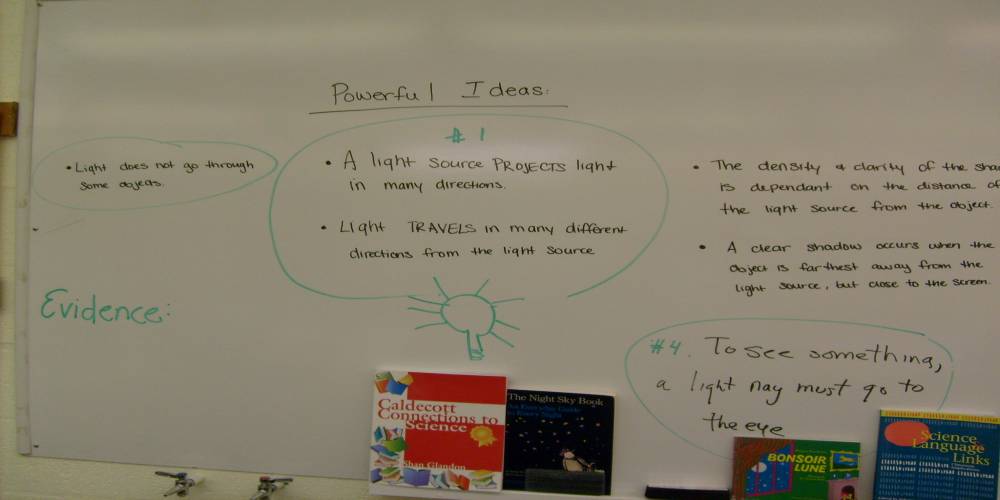 Powerful Ideas:
• Light does not go through
some objects.
#1
• A light source PROJECTS light
in many directions.
• Light TRAVELS in many different
directions from the light source
• The density & clarity of the
is dependant on the distance of
the light source from the object.
• A clear shadow occurs when the
object is farthest away from the
light source, but close to the screen.
Evidence:
#4. To see something,
a light ray must go to
the eye
Caldecott
Connections to
Science
Shan Glandon
The Night Sky Book
An Everyday Guide
to Every Night
BONSOIR
LUNE
Science
Language
Links